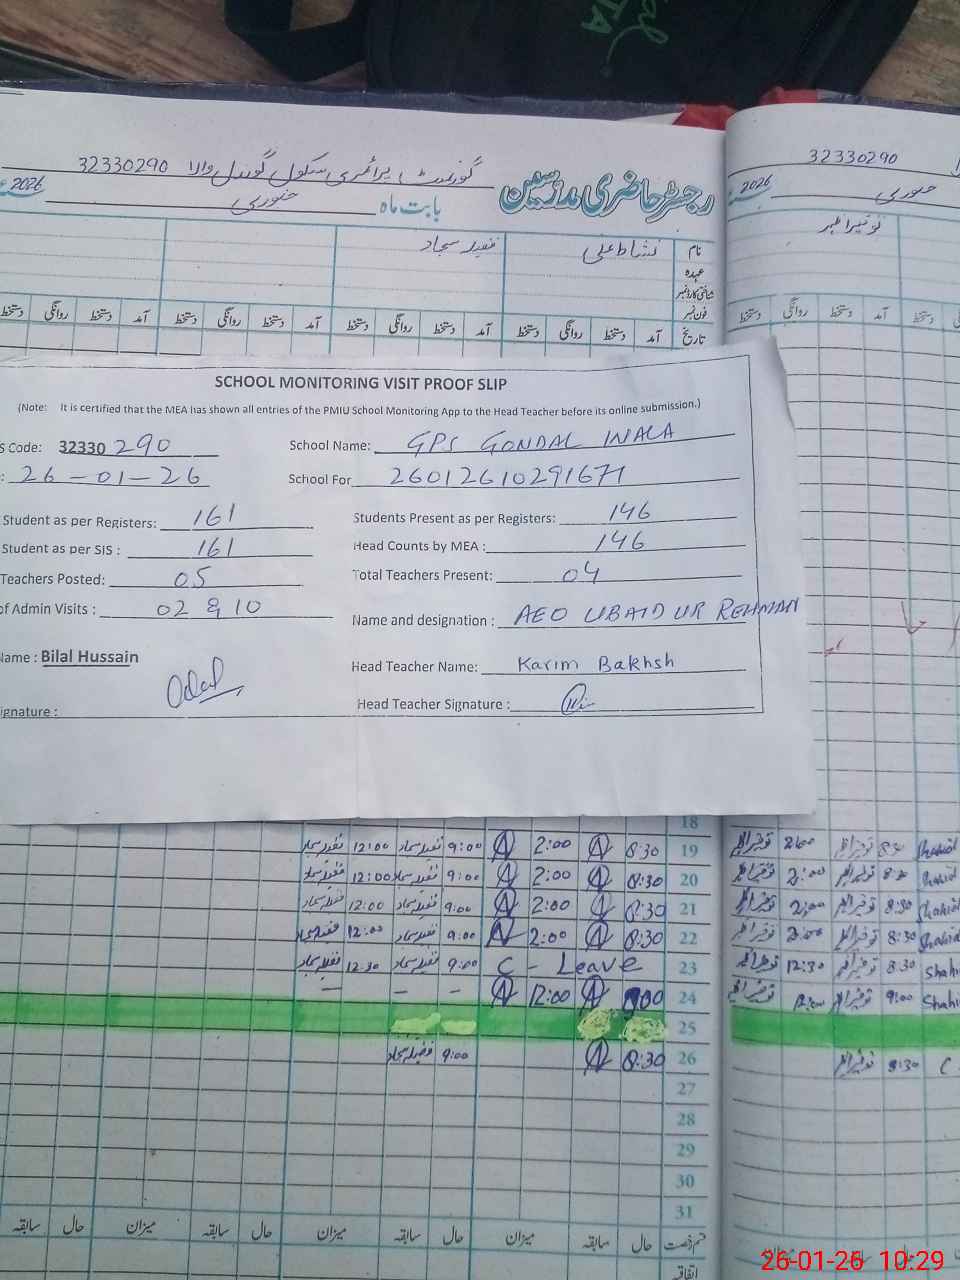 TA
گورنمنٹ پرائمری سکول گوندل والا 32330290
رجسٹر حاضری مدرسین
بابت ماہ جنوری 2026
32330290
جنوری 2026
نام نشاط علی
عہدہ
شناختی کارڈ نمبر
فون نمبر
تاریخ آمد دستخط روانگی دستخط آمد دستخط روانگی دستخط آمد دستخط روانگی دستخط آمد دستخط روانگی دستخط
آمد دستخط روانگی دستخط
SCHOOL MONITORING VISIT PROOF SLIP
(Note: It is certified that the MEA has shown all entries of the PMIU School Monitoring App to the Head Teacher before its online submission.)
S Code: 32330 290 School Name: GPS GONDAL WALA
: 26-01-26 School For 26012610291671
Student as per Registers: 161 Students Present as per Registers: 146
Student as per SIS : 161 Head Counts by MEA : 146
Teachers Posted: 05 Total Teachers Present: 04
of Admin Visits : 02 & 10 Name and designation : AEO UBAID UR REHMAN
Name : Bilal Hussain Head Teacher Name: Karim Bakhsh
ignature : Head Teacher Signature :
18
19 8:30 2:00 9:00 12:00
20 8:30 2:00 9:00 12:00
21 8:30 2:00 9:00 12:00
22 8:30 2:00 9:00 12:00
23 C - Leave 9:00 12:30
24 9:00 12:00 - - -
25
26 8:30 9:00
27
28
29
30
31
Shahid 8:30 2:00
Shahid 8:30 2:00
Shahid 8:30 2:00
Shahid 8:30 2:00
Shahi 8:30 12:30
Shahi 9:00 12:00
C 8:30
قسم رخصت حال سابقہ میزان حال سابقہ میزان حال سابقہ میزان حال سابقہ
اتفاقیہ
میزان
26-01-26 10:29